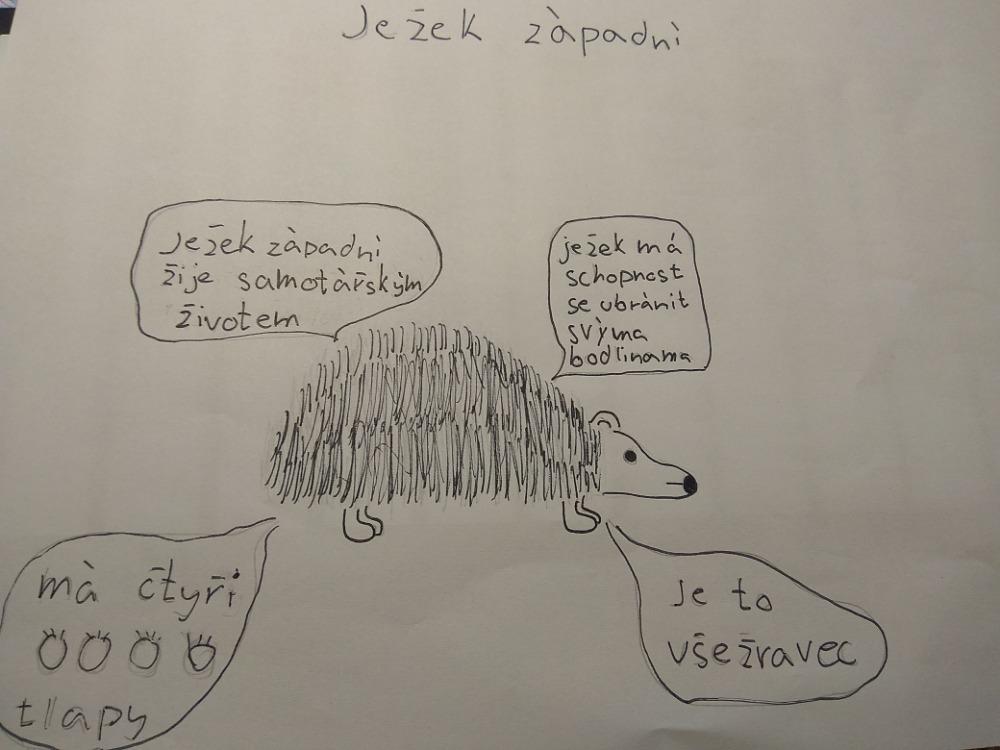 Ježek západní
Ježek západní
žije samotářským
životem
ježek má
schopnost
se ubránit
svýma
bodlinama
má čtyři
tlapy
Je to
všežravec